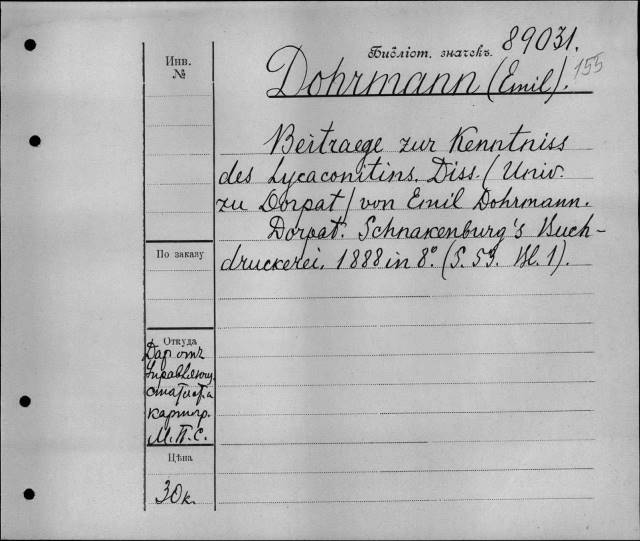 Библіот. значекъ. 89031.
155
Dohrmann (Emil).
Инв.
№
Beitraege zur Kenntniss
des Lycaconitins. Diss. (Univ.
zu Dorpat) von Emil Dohrmann.
Dorpat. Schnakenburg's Buch-
druckerei. 1888 in 8°. (S. 59. Bl. 1).
По заказу
Откуда
Дар отъ
Управляющ.
статист. и
картогр.
М.П.С.
Цѣна
30 к.